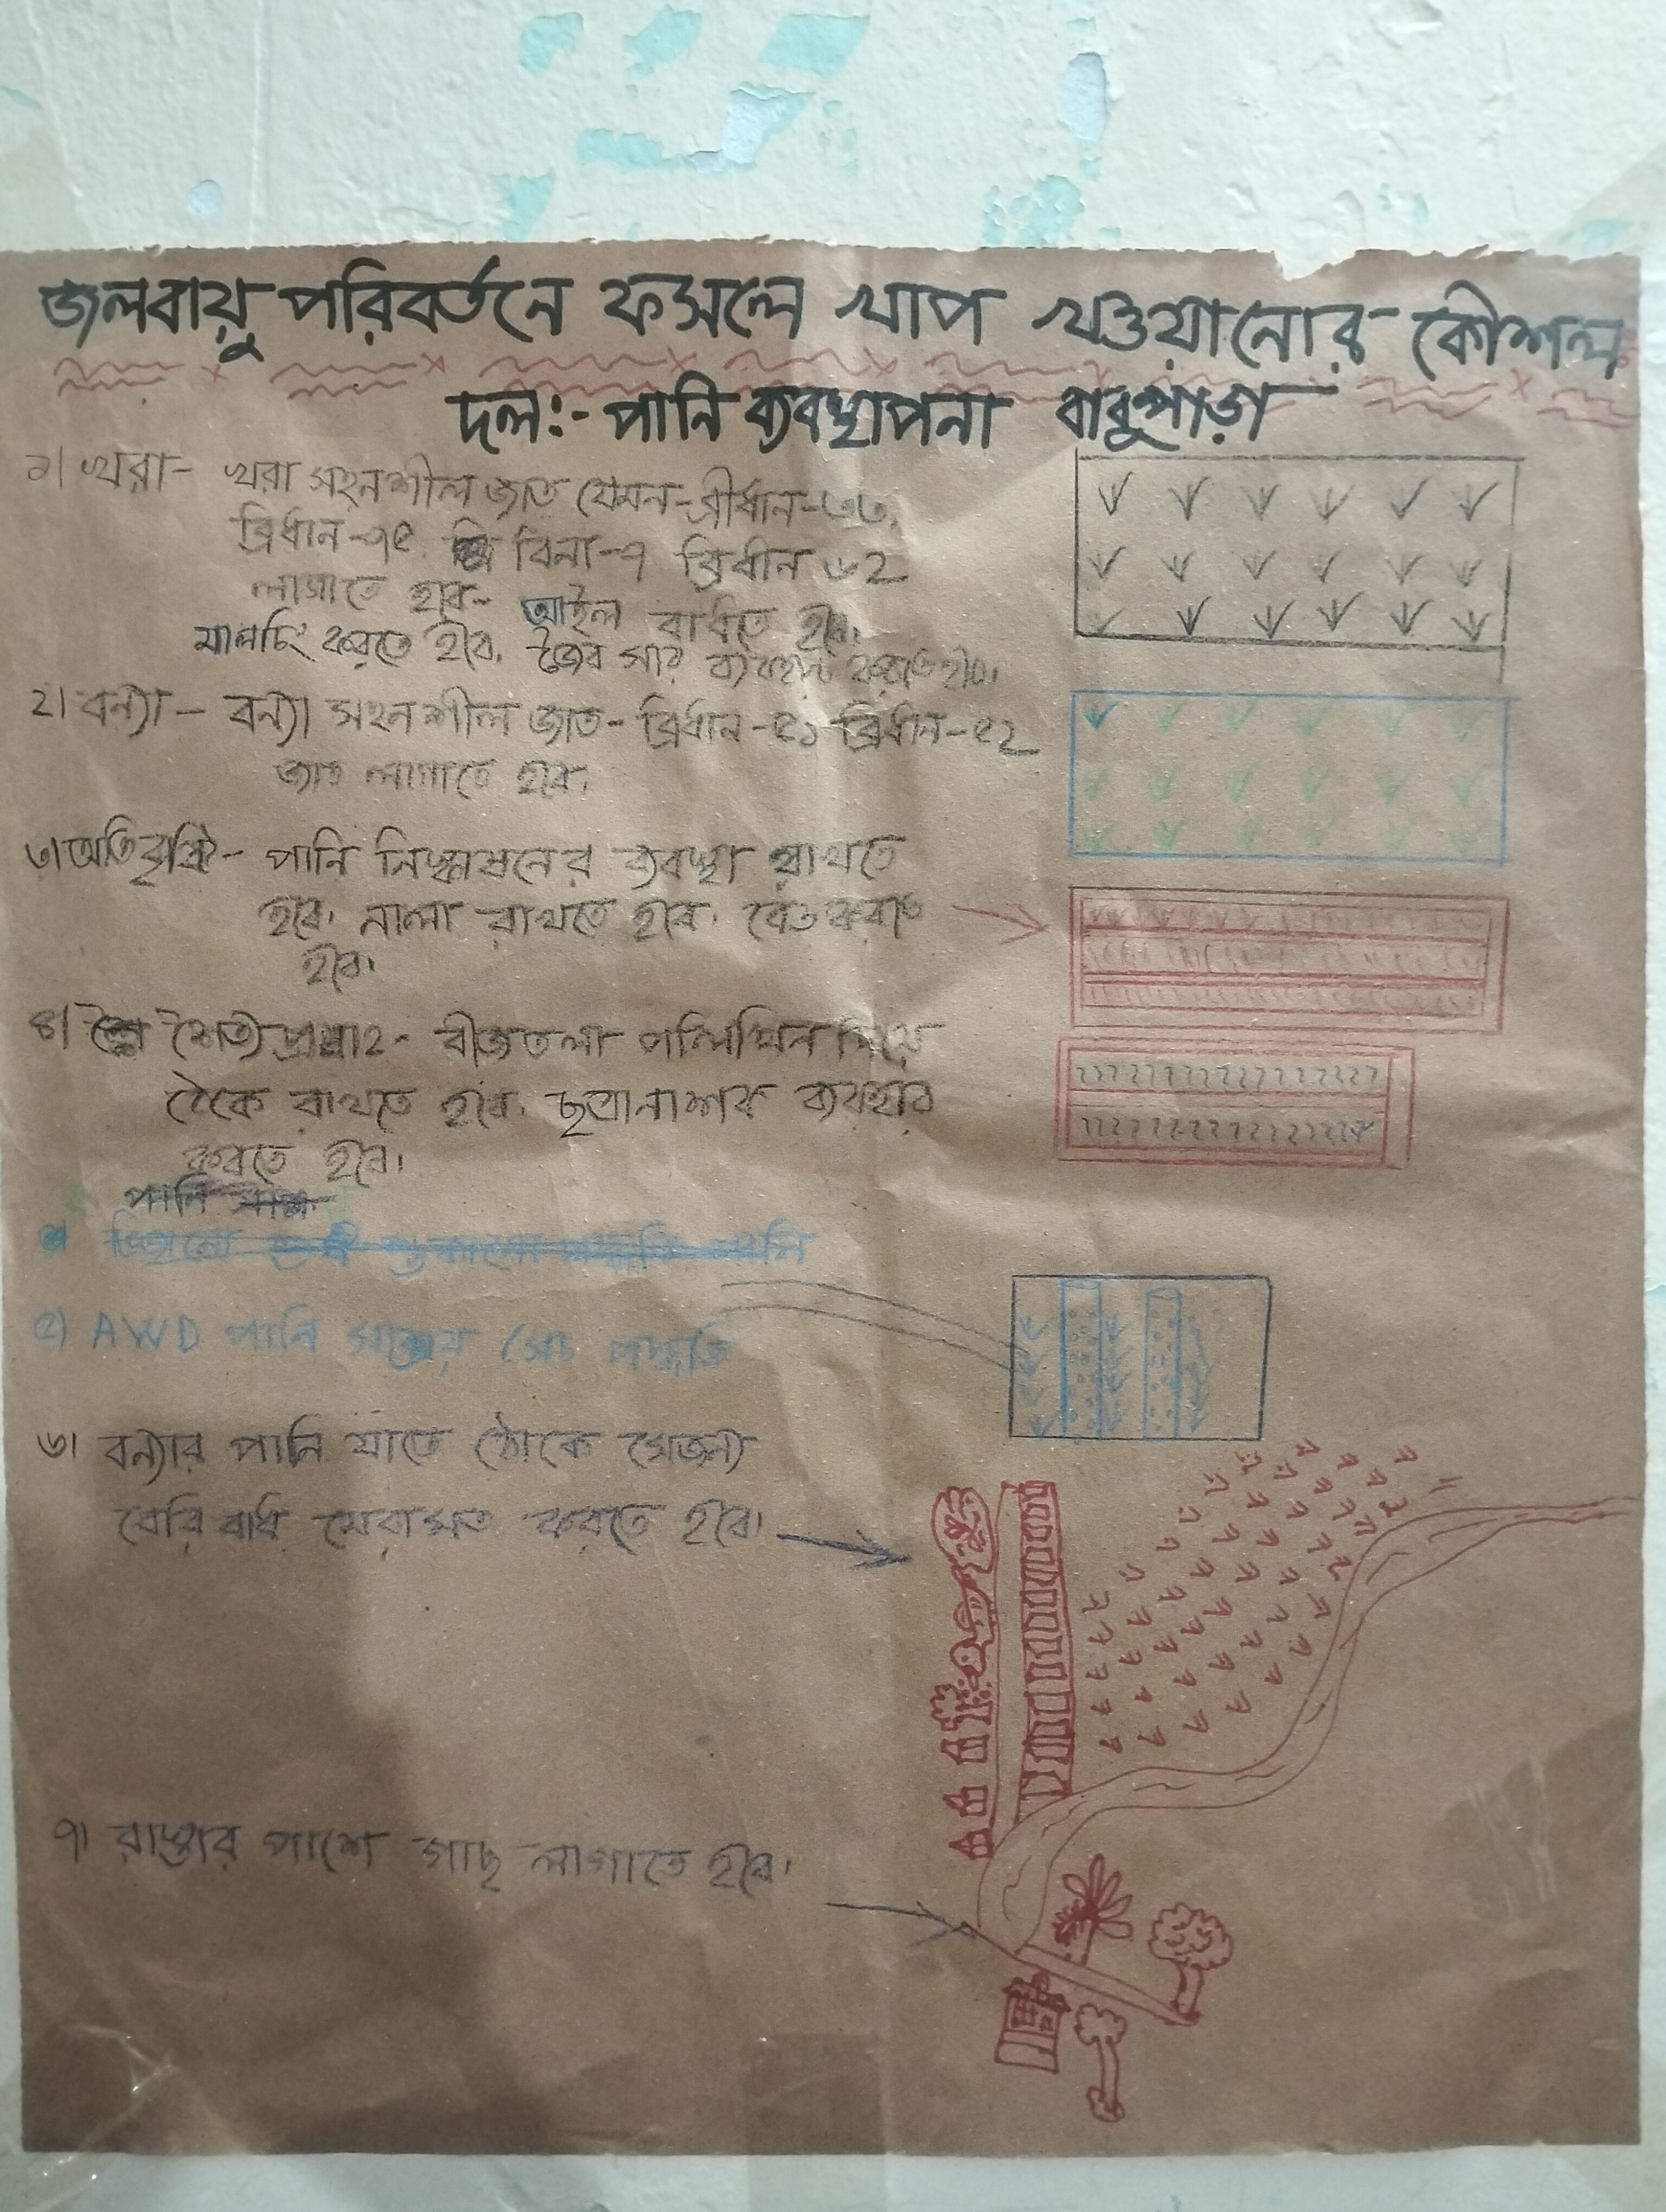 জলবায়ু পরিবর্তনে ফসলে খাপ খওয়ানোর কৌশল
দল:- পানি ব্যবস্থাপনা বাবুপাড়া
১। খরা- খরা সহনশীল জাত যেমন-ব্রীধান-৬৬,
ব্রিধান-৭৫ বিনা-৭ ব্রিধান ৬২
লাগাতে হবে- আইল বাধতে হবে।
মালচিং করতে হবে, জৈব সার ব্যবহার করতে হবে।
২। বন্যা - বন্যা সহনশীল জাত- ব্রিধান-৫১ ব্রিধান-৫২
জাত লাগাতে হবে।
৩। অতিবৃষ্টি- পানি নিষ্কাষনের ব্যবস্থা রাখতে
হবে। নালা রাখতে হবে। বেড করতে
হবে।
৪। শৈত্য প্রবাহ- বীজতলা পলিথিন দিয়ে
ঢেকে রাখতে হবে। ছত্রানাশক ব্যবহার
করতে হবে।
পানি
৫) AWD পানি সাশ্রয় সেচ পদ্ধতি
৬। বন্যার পানি যাতে ঠেকে সেজন্য
বেরি বাধ মেরামত করতে হবে।
৭। রাস্তার পাশে গাছ লাগাতে হবে।